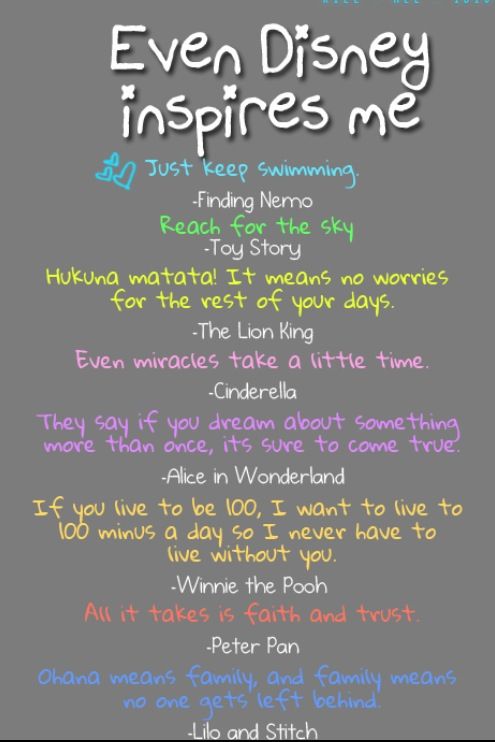 Even Disney
inspires me
Just keep swimming.
-Finding Nemo
Reach for the sky
-Toy Story
Hukuna matata! It means no worries
for the rest of your days.
-The Lion King
Even miracles take a little time.
-Cinderella
They say if you dream about something
more than once, its sure to come true.
-Alice in Wonderland
If you live to be 100, I want to live to
100 minus a day so I never have to
live without you.
-Winnie the Pooh
All it takes is faith and trust.
-Peter Pan
Ohana means family, and family means
no one gets left behind.
-Lilo and Stitch